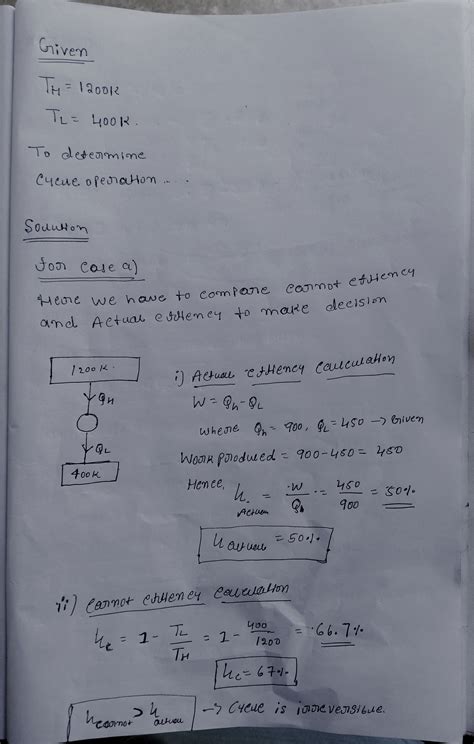 Given
TH = 1200K
TL = 400K.
To determine
Cycle operation ....
Solution
for case a)
Here we have to compare carnot effiency
and Actual effiency to make decision
1200K.
QH
QL
400K
i) Actual effiency calculation
W = Qh - QL
where Qh = 900, QL = 450 → Given
Work produced = 900 - 450 = 450
Hence, η Actual = W/Qh = 450/900 = 50%
η actual = 50%
ii) carnot effiency calculation
ηc = 1 - TL/TH = 1 - 400/1200 = 66.7%
ηc = 67%
ηcarnot > ηactual → Cycle is irreversible.